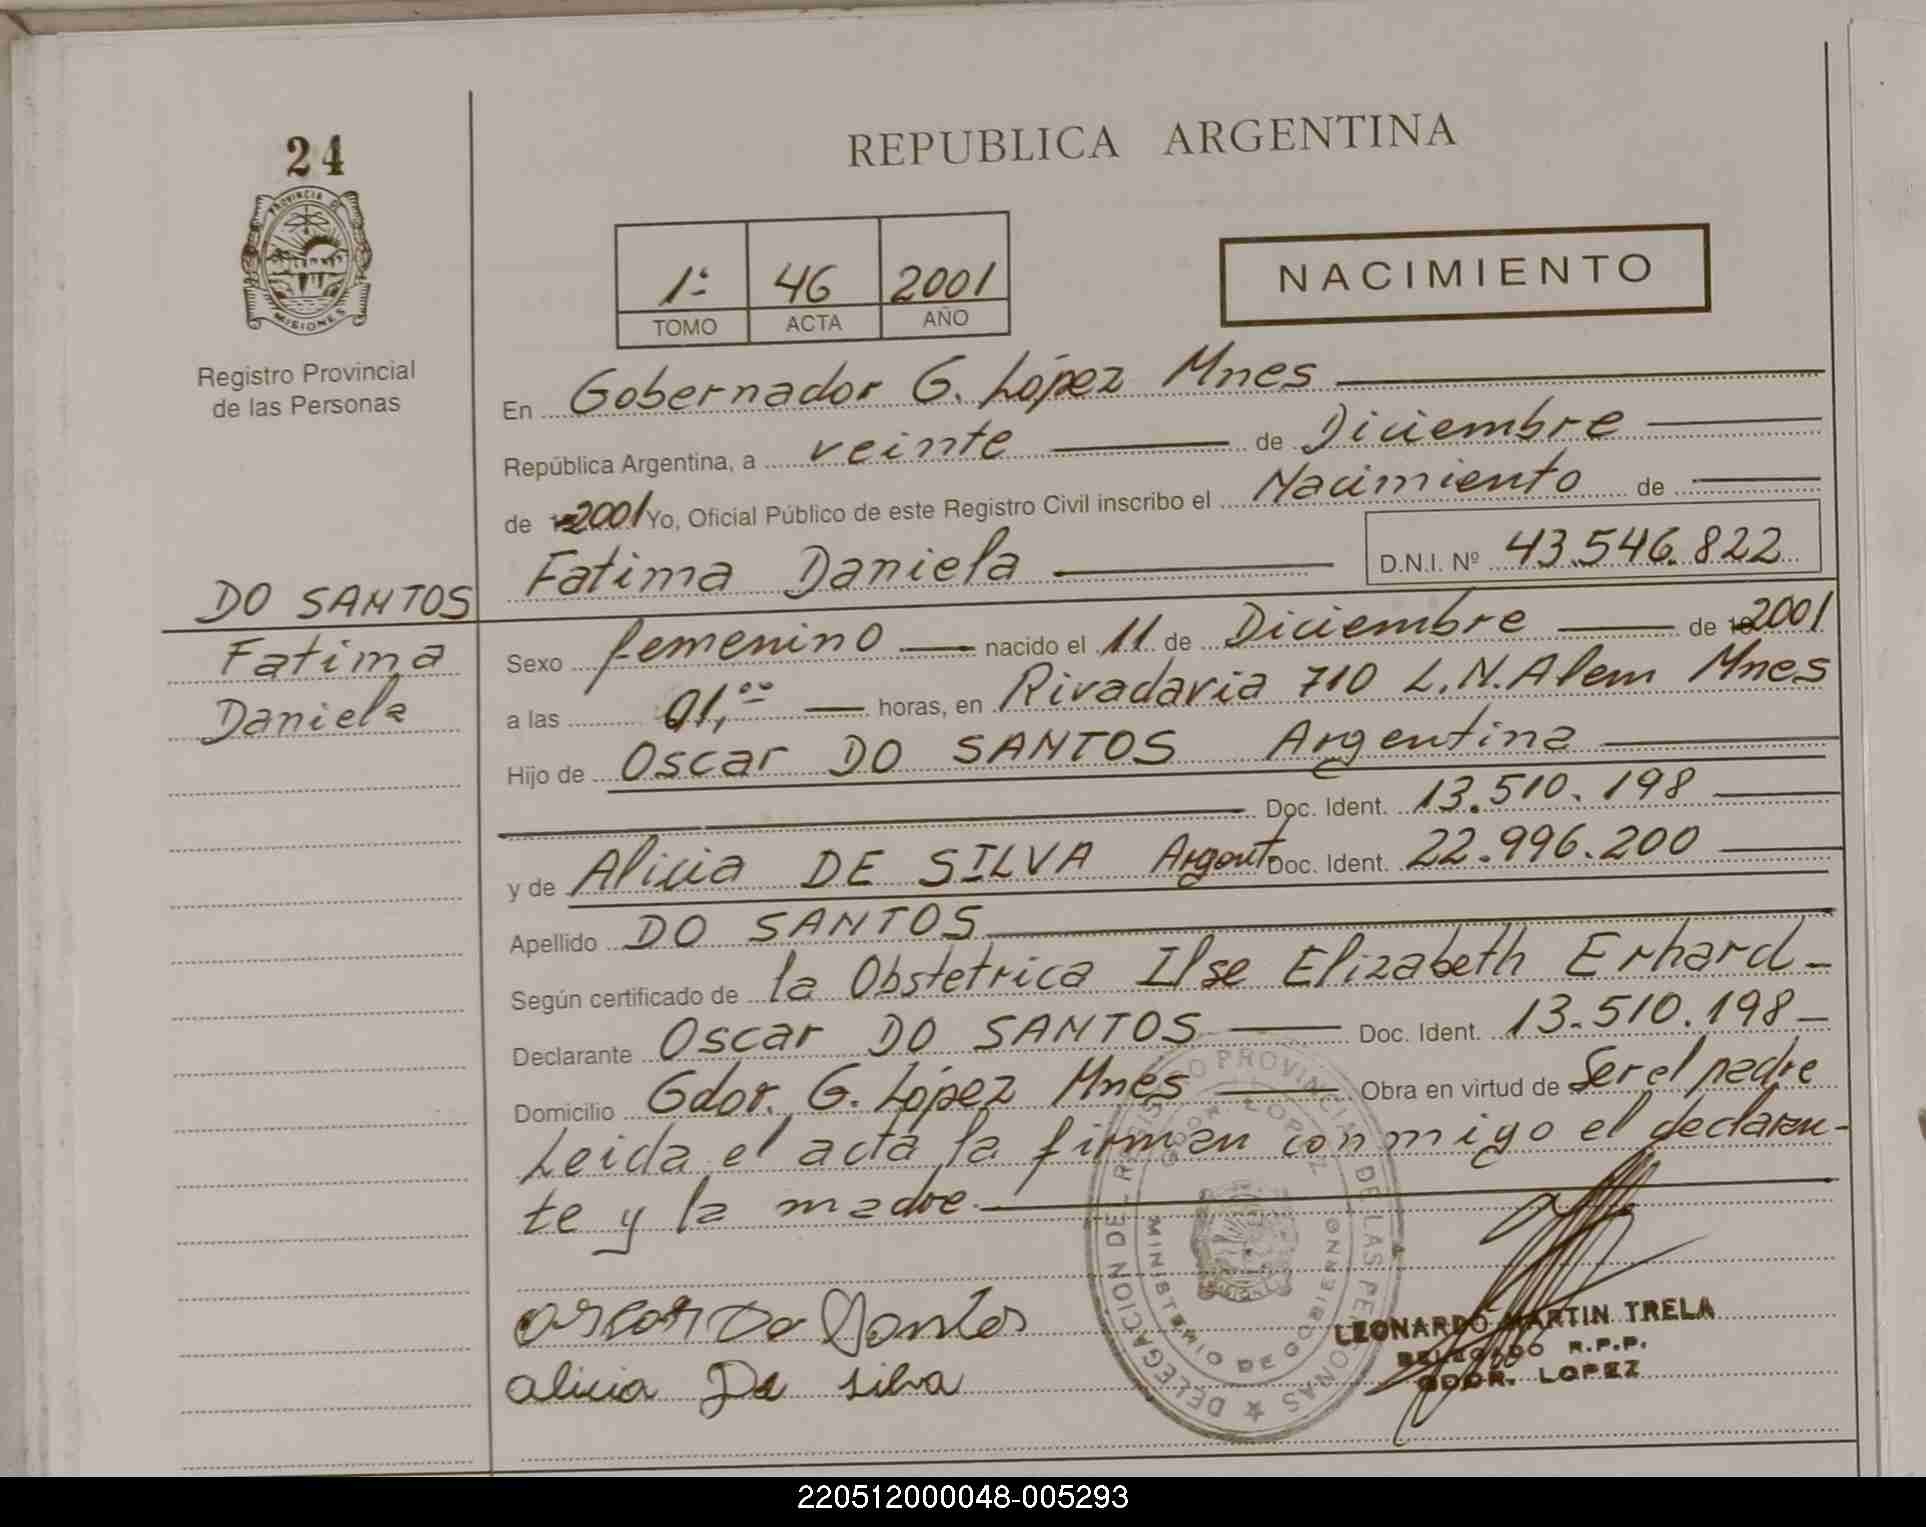 24
PROVINCIA DE
MISIONES
Registro Provincial
de las Personas
DO SANTOS
Fatima
Daniela
REPUBLICA ARGENTINA
1º 46 2001
TOMO ACTA AÑO
NACIMIENTO
En Gobernador G. López Mnes
República Argentina, a veinte de Diciembre
de 2001 Yo, Oficial Público de este Registro Civil inscribo el Nacimiento de
Fatima Daniela D.N.I. Nº 43.546.822
Sexo femenino nacido el 11 de Diciembre de 2001
a las 01,00 horas, en Rivadavia 710 L.N.Alem Mnes
Hijo de Oscar DO SANTOS Argentina
Doc. Ident. 13.510.198
y de Alicia DE SILVA Argent Doc. Ident. 22.996.200
Apellido DO SANTOS
Según certificado de la Obstetrica Ilse Elizabeth Erhard
Declarante Oscar DO SANTOS Doc. Ident. 13.510.198
Domicilio Gdor. G. López Mnes Obra en virtud de Ser el padre
Leida el acta la firman conmigo el declaran-
te y la madre.
oscar Do Santos
alicia De silva
DELEGACION DE REGISTRO PROVINCIAL DE LAS PERSONAS
GDOR LOPEZ
MINISTERIO DE GOBIERNO
LEONARDO MARTIN TRELA
DELEGADO R.P.P.
GDOR. LOPEZ
220512000048-005293